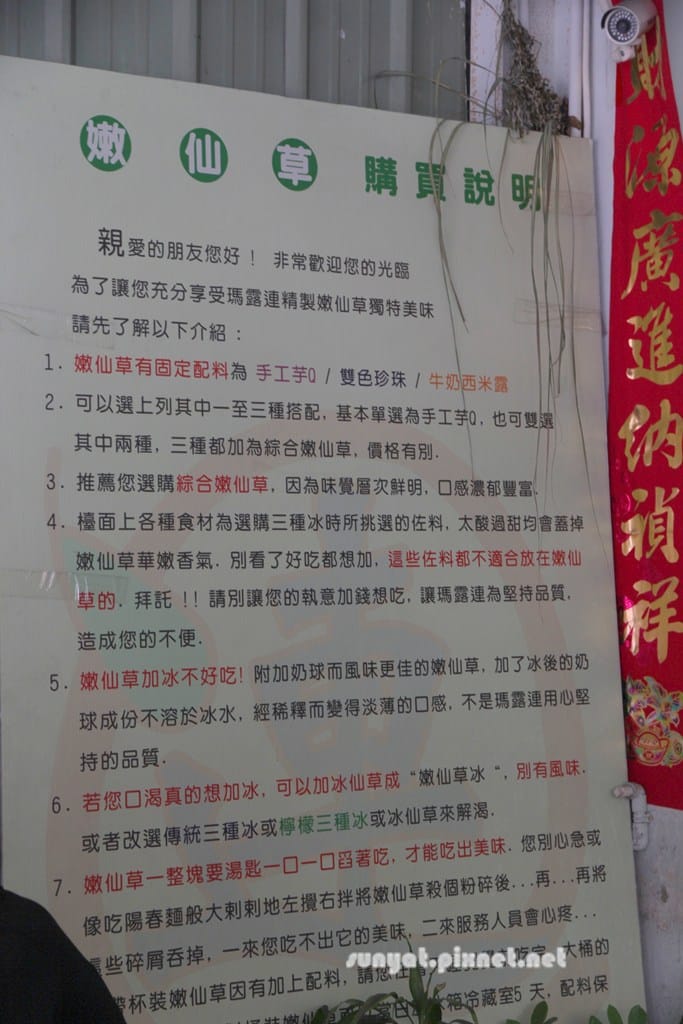 嫩仙草 購買說明
親愛的朋友您好！ 非常歡迎您的光臨
為了讓您充分享受瑪露連精製嫩仙草獨特美味
請先了解以下介紹：
1. 嫩仙草有固定配料為 手工芋Q / 雙色珍珠 / 牛奶西米露
2. 可以選上列其中一至三種搭配, 基本單選為手工芋Q, 也可雙選
其中兩種, 三種都加為綜合嫩仙草, 價格有別.
3. 推薦您選購綜合嫩仙草, 因為味覺層次鮮明, 口感濃郁豐富.
4. 檯面上各種食材為選購三種冰時所挑選的佐料. 太酸過甜均會蓋掉
嫩仙草華嫩香氣. 別看了好吃都想加, 這些佐料都不適合放在嫩仙
草的. 拜託 !! 請別讓您的執意加錢想吃, 讓瑪露連為堅持品質,
造成您的不便.
5. 嫩仙草加冰不好吃! 附加奶球而風味更佳的嫩仙草, 加了冰後的奶
球成份不溶於冰水, 經稀釋而變得淡薄的口感, 不是瑪露連用心堅
持的品質.
6. 若您口渴真的想加冰, 可以加冰仙草成 “嫩仙草冰 “, 別有風味.
或者改選傳統三種冰或檸檬三種冰或冰仙草來解渴.
7. 嫩仙草一整塊要湯匙一口一口舀著吃, 才能吃出美味. 您別心急或
像吃陽春麵般大剌剌地左攪右拌將嫩仙草殺個粉碎後...再...再將
這些碎屑吞掉, 一來您吃不出它的美味, 二來服務人員會心疼...
杯裝嫩仙草因有加上配料, 請您 大桶的
冰箱冷藏室5 天, 配料保
財源廣進納禎祥
sunyat.pixnet.net